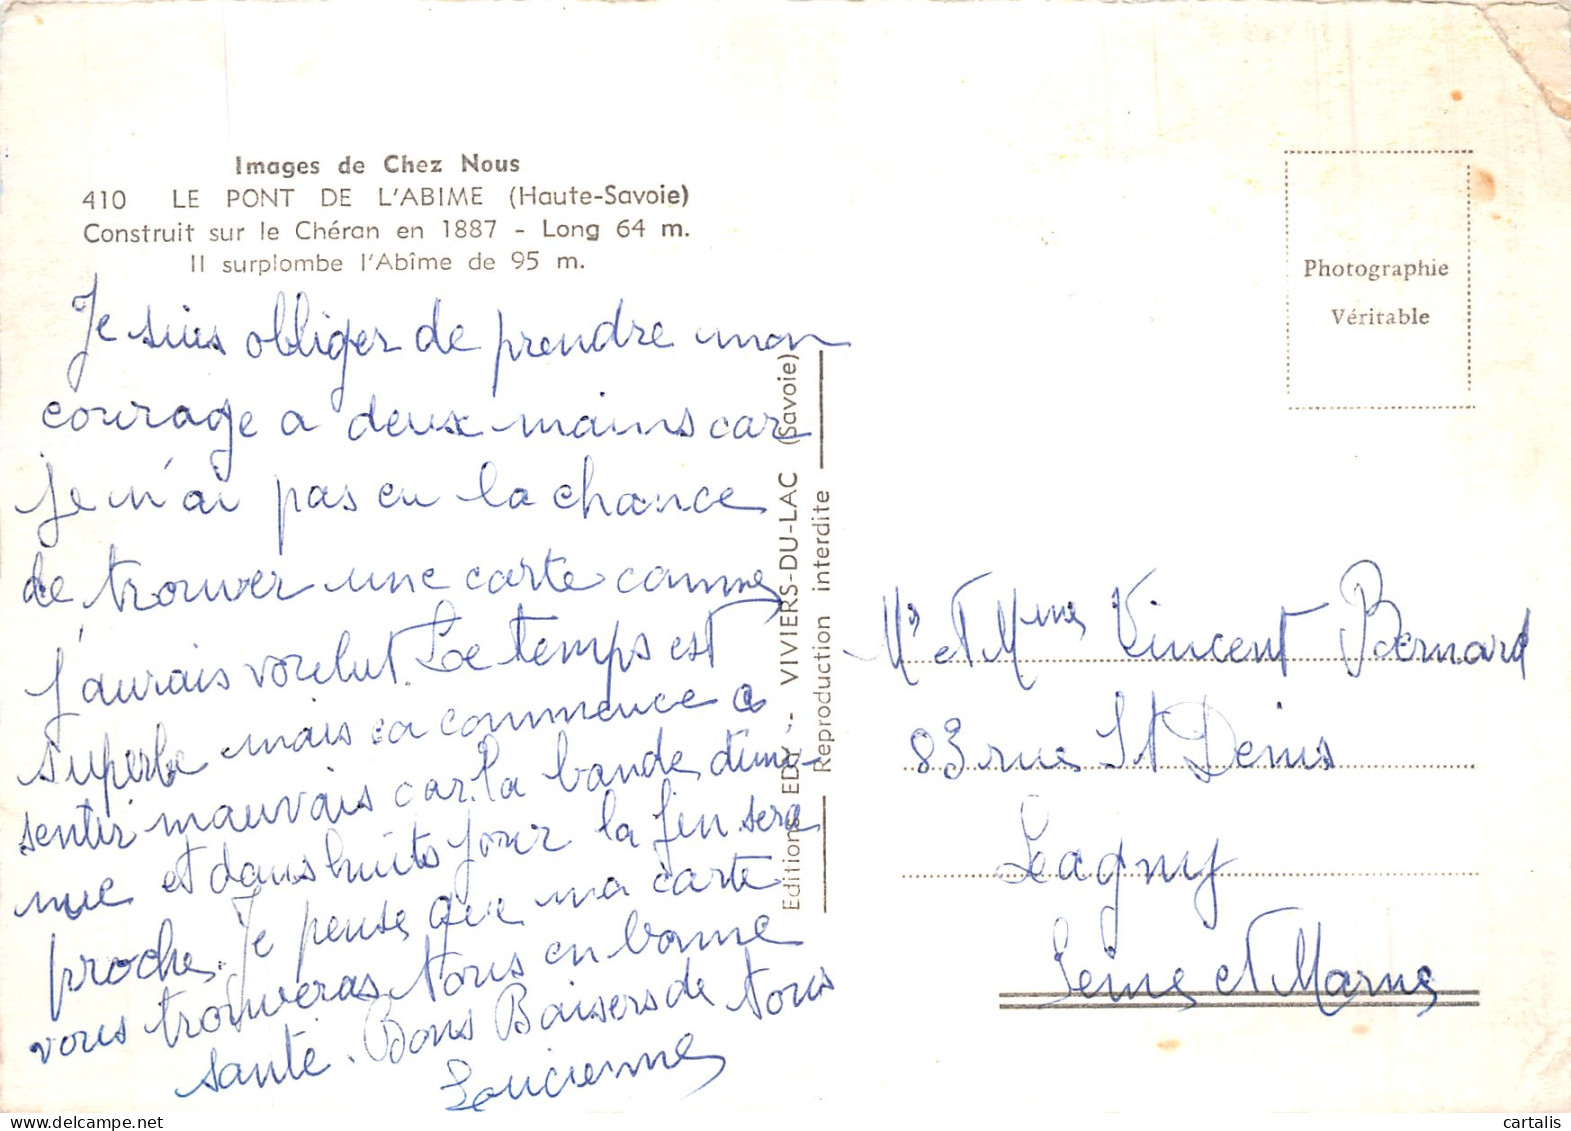 Images de Chez Nous
410 LE PONT DE L'ABIME (Haute-Savoie)
Construit sur le Chéran en 1887 - Long 64 m.
Il surplombe l'Abîme de 95 m.
Je suis obliger de prendre mon
courage a deux mains car
je n'ai pas eu la chance
de trouver une carte comme
j'aurais voulut. Le temps est
superbe mais ca commence a
sentir mauvais car la bande dimi-
nue et dans huits jour la fin sera
proche. Je pense que ma carte
vous trouveras tous en bonne
santé. Bons Baisers de tous
Lucienne
Editions EDY - VIVIERS-DU-LAC (Savoie)
Reproduction interdite
Photographie
Véritable
Mr et Mme Vincent Bernard
83 rue St Denis
Lagny
Seine et Marne
cartalis